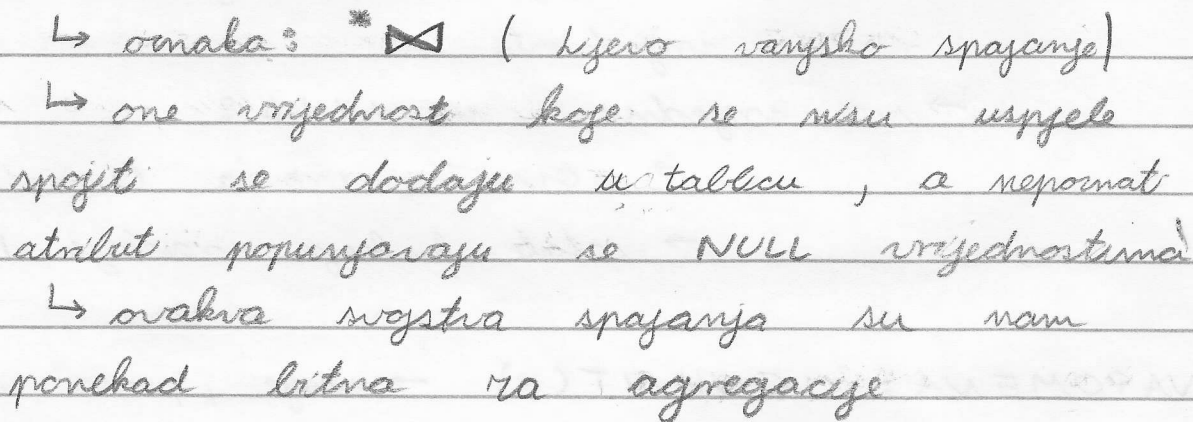 ↳ oznaka: *⋈ (Lijevo vanjsko spajanje)
↳ one vrijednost koje se nisu uspjele
spojit se dodaju u tablicu, a nepoznat
atribut popunjavaju se NULL vrijednostima
↳ ovakva svojstva spajanja su nam
ponekad bitna za agregacije